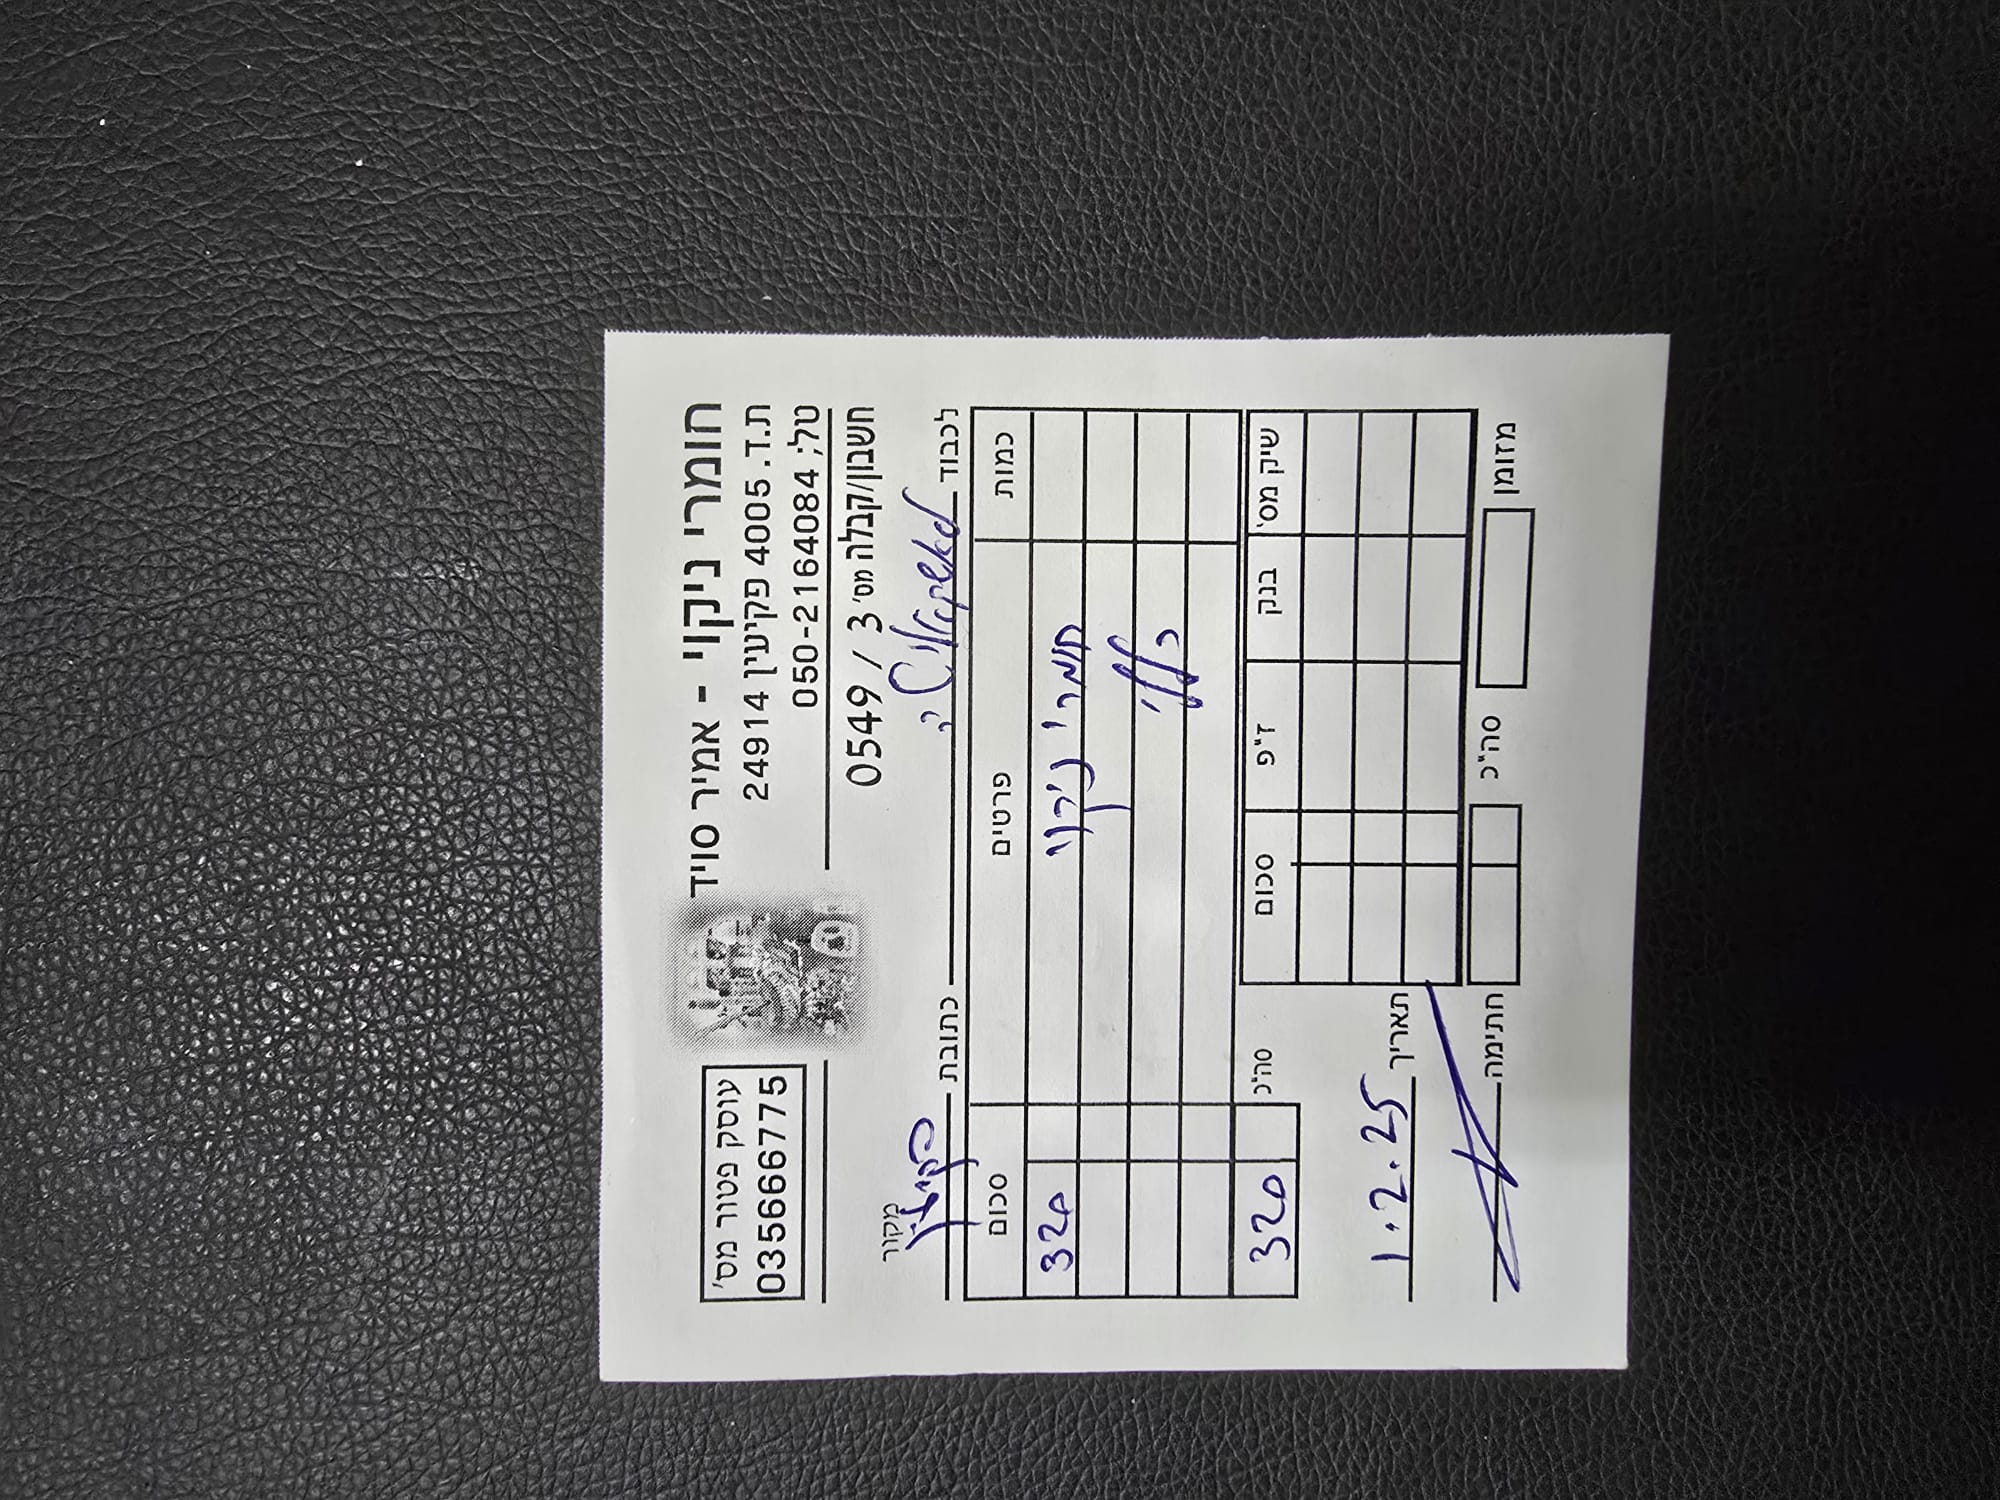 חומרי ניקוי - אמיר סויד
ת.ד. 4005 פקיעין 24914
טל; 050-2164084
עוסק פטור מס'
035666775
חשבון/קבלה מס' 3 / 0549
מקור
לכבוד כתובת
כמות פרטים סכום
חומרי ניקוי 320
כללי
סה"כ 320
שיק מס' בנק ז"פ סכום
תאריך 1.2.25
מזומן סה"כ חתימה